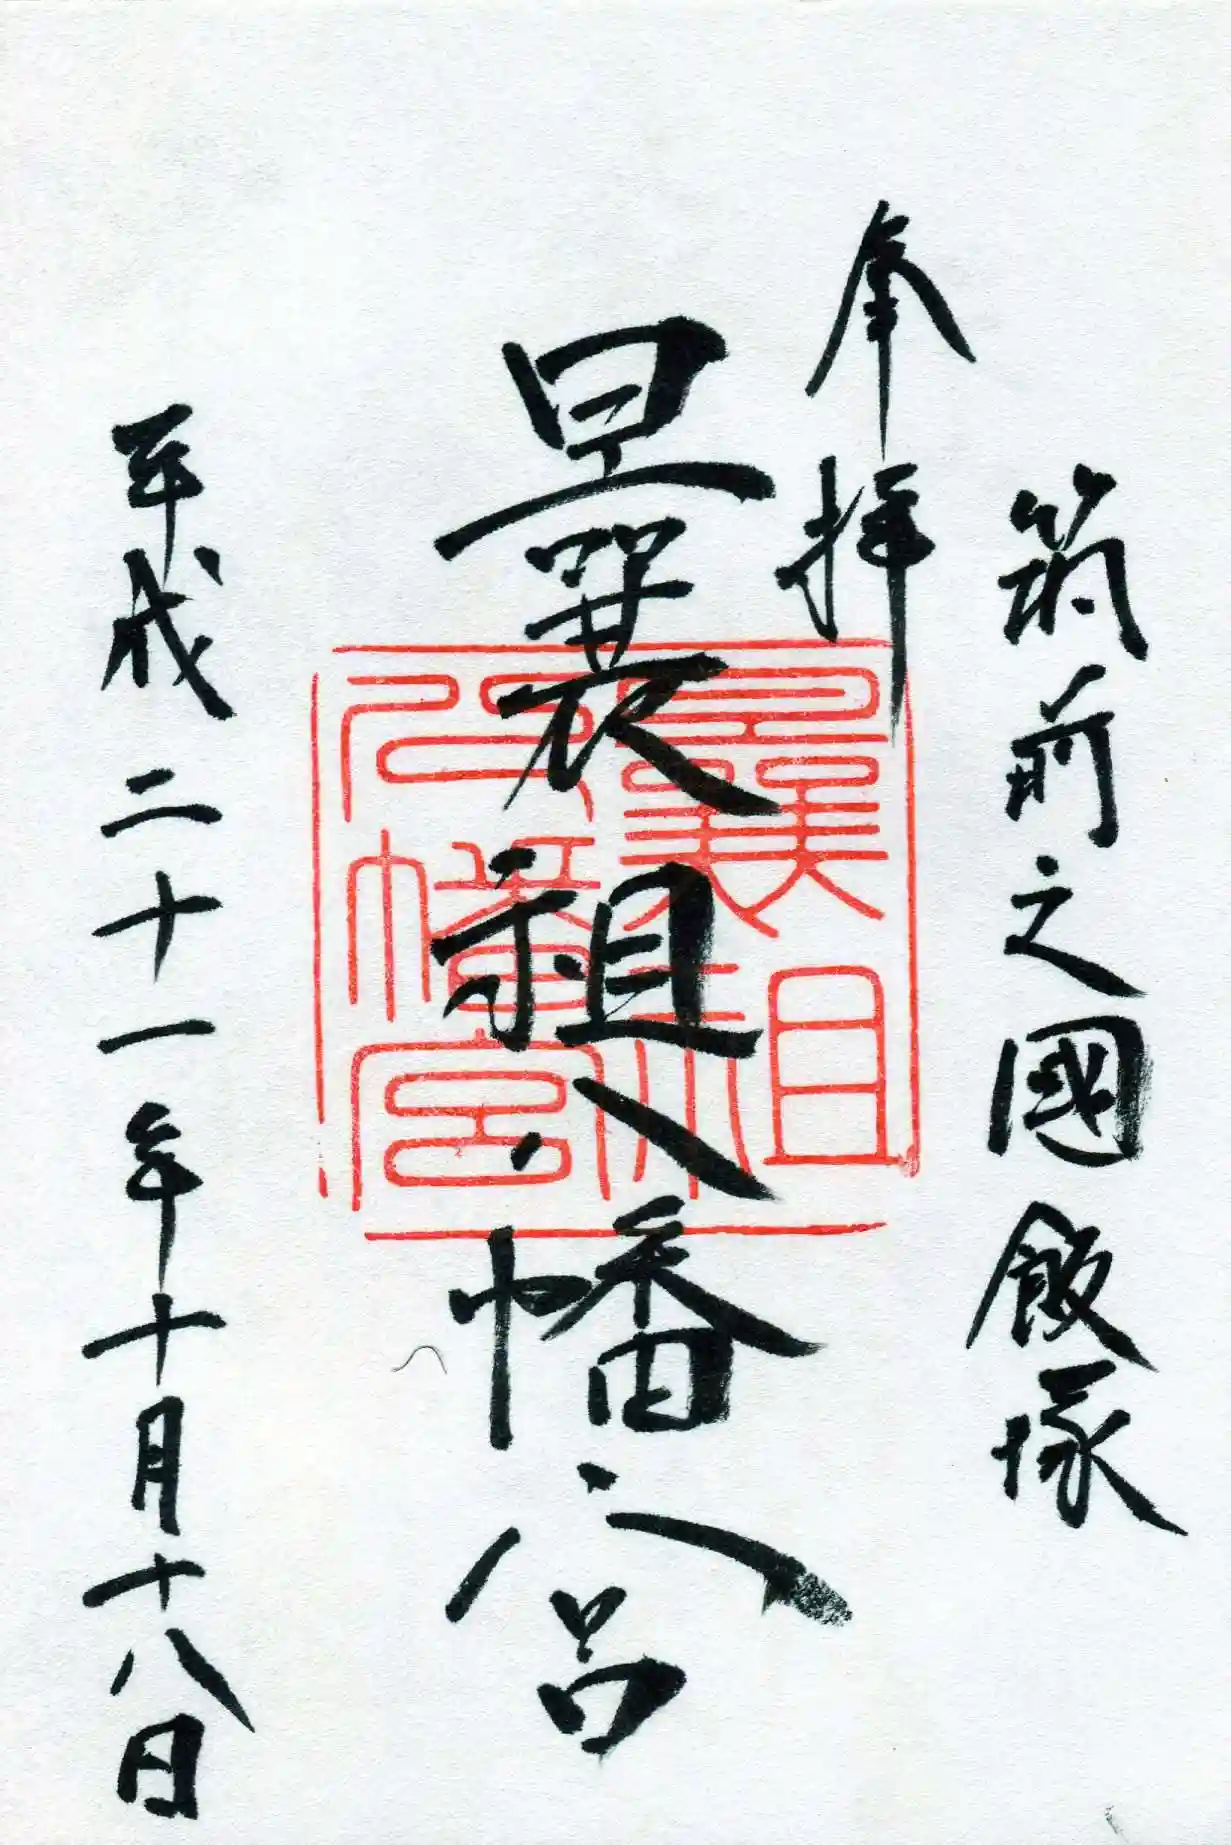 筑前之國飯塚
奉拝
曩祖八幡宮
曩祖
八幡宮
平成二十一年十月十八日